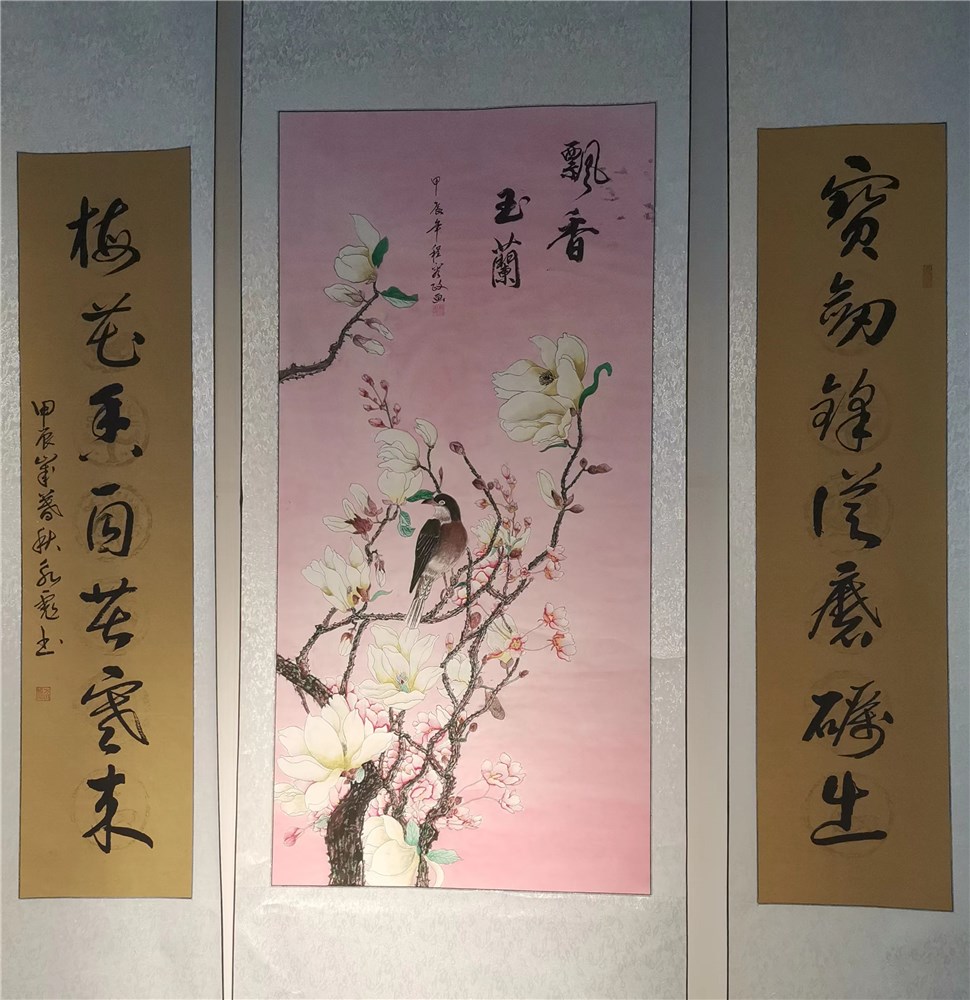 寶劒鋒從磨礪出
飄香
玉蘭
甲辰年程畫
梅花香自苦寒來
甲辰歲暮秋永彪书